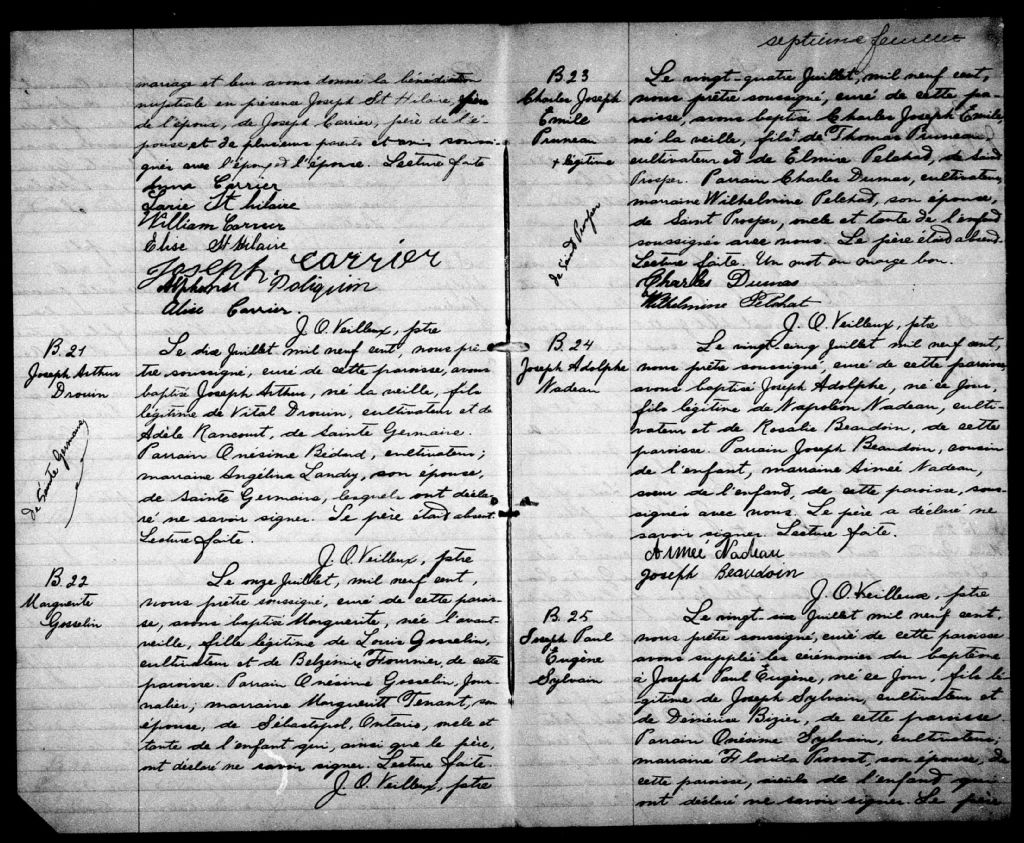 mariage et leur avons donné la bénédiction
nuptiale en présence Joseph St Hilaire, père
de l'époux, de Joseph Carrier, père de l'é-
pouse et de plusieurs parents et amis soussi-
gnés avec l'époux et l'épouse. Lecture faite
Anna Carrier
St hilaire
William Carrier
Elise St Hilaire
Joseph Carrier
Alphonse Poliquin
Alice Carrier
J. O. Veilleux, ptre
B. 21
Joseph Arthur
Drouin
de Sainte Germaine
Le dix Juillet mil neuf cent, nous prê-
tre soussigné, curé de cette paroisse, avons
baptisé Joseph Arthur, né la veille, fils
légitime de Vital Drouin, cultivateur et de
Adèle Rancourt, de Sainte Germaine.
Parrain Onésime Bédard, cultivateur;
marraine Angélina Landry, son épouse,
de Sainte Germaine, lesquels ont décla-
ré ne savoir signer. Le père était absent.
Lecture faite.
J. O. Veilleux, ptre
B. 22
Marguerite
Gosselin
Le onze Juillet, mil neuf cent,
nous prêtre soussigné, curé de cette parois-
se, avons baptisé Marguerite, née l'avant
veille, fille légitime de Louis Gosselin,
cultivateur et de Belzemire Fournier, de cette
paroisse. Parrain Onésime Gosselin, Jour-
nalier; marraine Marguerite Tenant, son
épouse, de Sébastopol, Ontario, oncle et
tante de l'enfant qui, ainsi que le père,
ont déclaré ne savoir signer. Lecture faite.
J. O. Veilleux, ptre
septième feuillet
B 23
Charles Joseph
Emile
Pruneau
+ légitime
de Saint Prosper
Le vingt-quatre Juillet, mil neuf cent,
nous prêtre soussigné, curé de cette pa-
roisse, avons baptisé Charles Joseph Emile,
né la veille, fils + de Thomas Pruneau
cultivateur et de Elmire Pelchat, de Saint
Prosper. Parrain Charles Dumas, cultivateur,
marraine Wilhelmine Pelchat, son épouse,
de Saint Prosper, oncle et tante de l'enfant
soussignés avec nous. Le père était absent.
Lecture faite. Un mot en marge bon.
Charles Dumas
Wilhelmine Pelchat
J. O. Veilleux, ptre
B. 24
Joseph Adolphe
Nadeau
Le vingt-cinq Juillet mil neuf cent,
nous prêtre soussigné, curé de cette paroisse,
avons baptisé Joseph Adolphe, né ce Jour,
fils légitime de Napoléon Nadeau, culti-
vateur et de Rosalie Beaudoin, de cette
paroisse. Parrain Joseph Beaudoin, cousin
de l'enfant, marraine Aimée Nadeau,
sœur de l'enfant, de cette paroisse, sous-
signés avec nous. Le père a déclaré ne
savoir signer. Lecture faite.
Aimée Nadeau
Joseph Beaudoin
J. O. Veilleux, ptre
B. 25
Joseph Paul
Eugène
Sylvain
Le vingt-six Juillet mil neuf cent,
nous prêtre soussigné, curé de cette paroisse
avons suppléé les cérémonies du baptême
à Joseph Paul Eugène, né ce Jour, fils lé-
gitime de Joseph Sylvain, cultivateur et
de Démérise Bizier, de cette paroisse
Parrain Onésime Sylvain, cultivateur;
marraine Florida Provost, son épouse, de
cette paroisse, de l'enfant qui
ont déclaré ne savoir signer. Le père